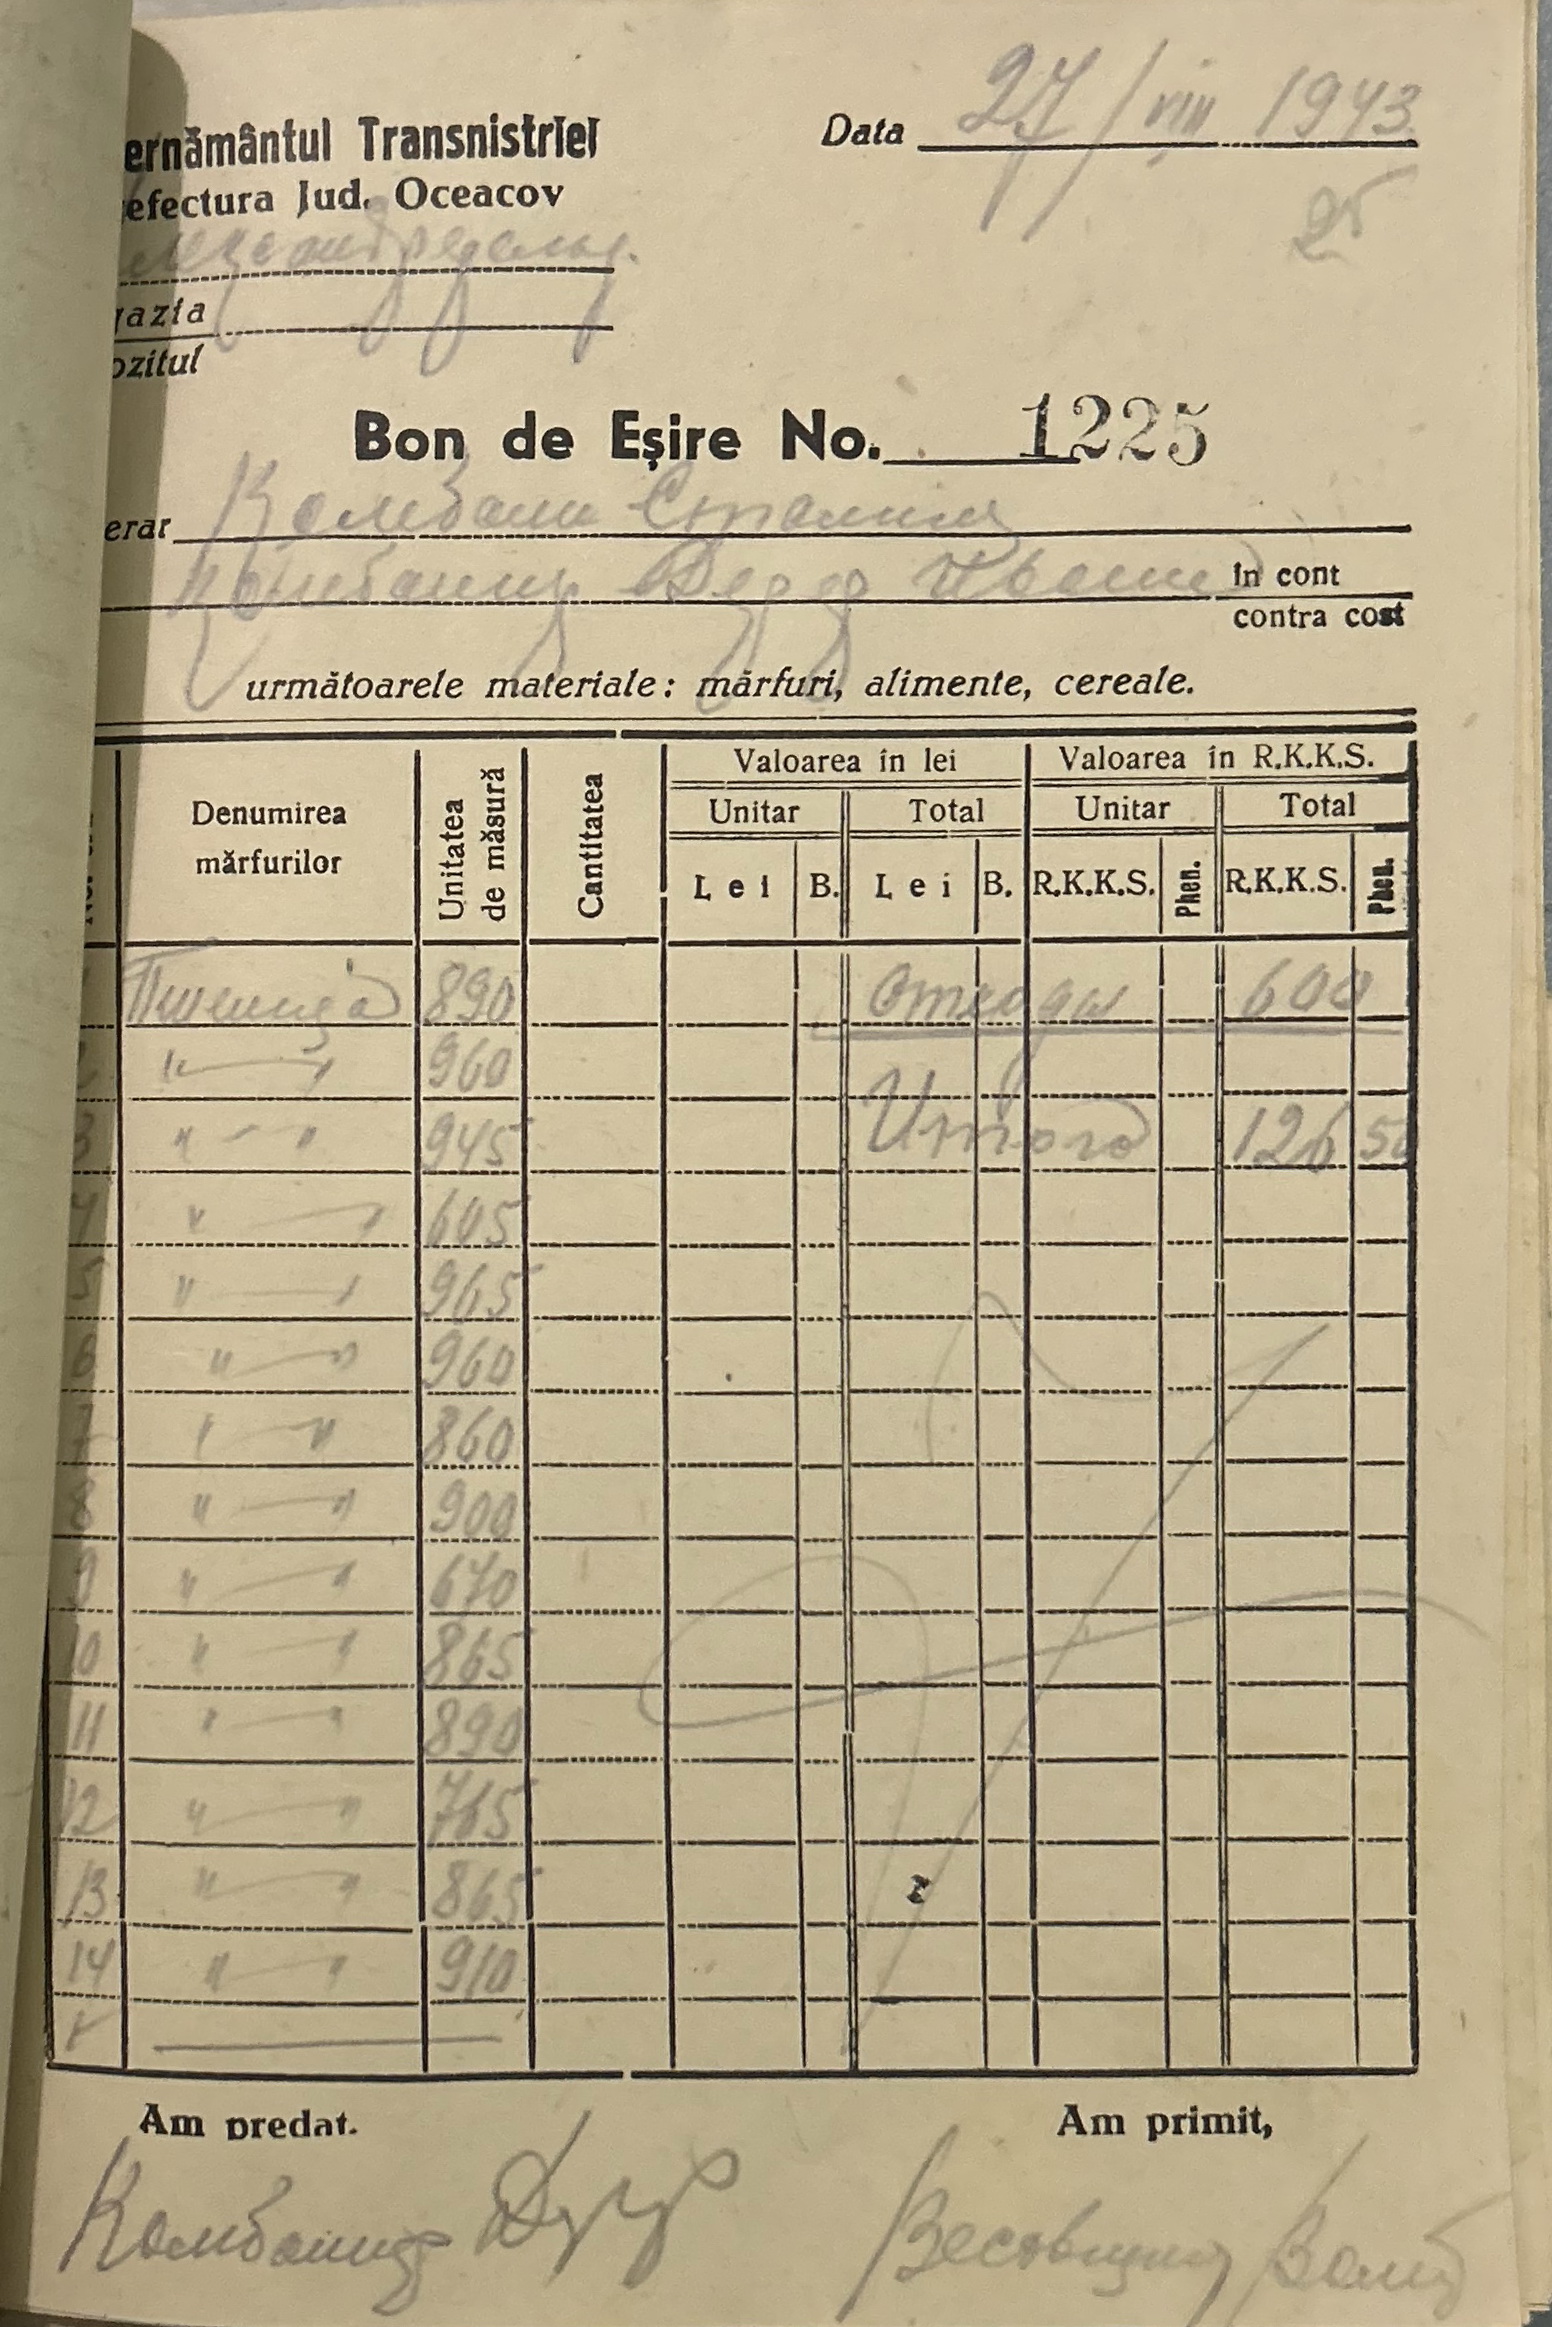 ernământul Transnistriei
Data 27/VIII 1943
efectura Jud. Oceacov
25
gazia
ozitul
Bon de Eșire No. 1225
erar Комбайн Сталинец
Комбайнер Дедд Иван în cont
contra cost
următoarele materiale: mărfuri, alimente, cereale.
Denumirea mărfurilor Unitatea de măsură Cantitatea Valoarea în lei Valoarea în R.K.K.S.
Unitar Total Unitar Total
Lei B. Lei B. R.K.K.S. Phen. R.K.K.S. Phen.
Пшеница 890 600
2 " — " 960
3 " — " 945 Итого 126 50
4 " — " 605
5 " — " 965
6 " — " 960
7 " — " 860
8 " — " 900
9 " — " 670
10 " — " 865
11 " — " 890
12 " — " 765
13 " — " 865
14 " — " 910
Am predat.
Am primit,
Комбайнер
Весовщик